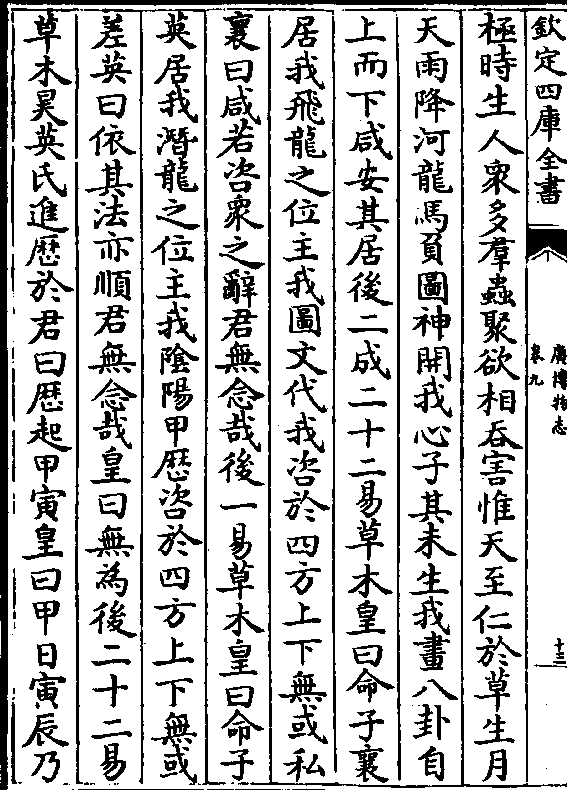 欽定四庫全書
廣博物志
卷九
十三
極時生人衆多羣蟲聚欲相吞害惟天至仁於草生月
天雨降河龍馬負圖神開我心子其未生我畫八卦自
上而下咸安其居後二成二十二易草木皇曰命子襄
居我飛龍之位主我圖文代我咨於四方上下無或私
襄曰咸若咨衆之辭君無念哉後一易草木皇曰命子
英居我潛龍之位主我陰陽甲厯咨於四方上下無或
差英曰依其法亦順君無念哉皇曰無為後二十二易
草木昊英氏進厯於君曰厯起甲寅皇曰甲日寅辰乃